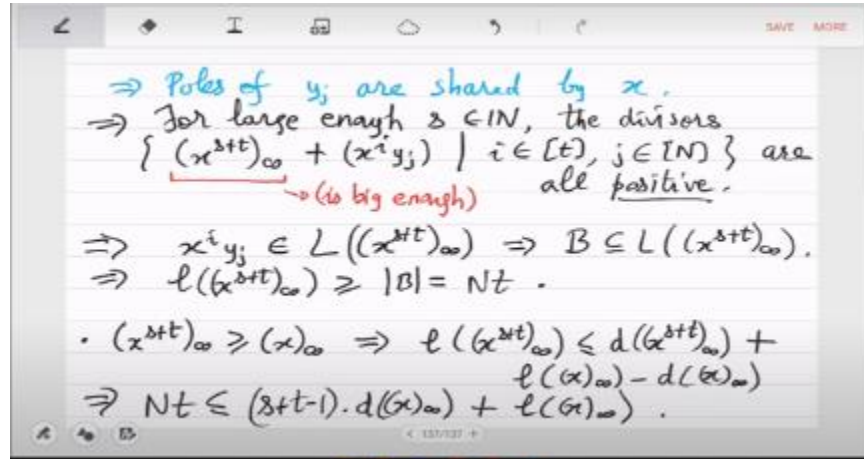 SAVE MORE
⇒ Poles of y_j are shared by x.
⇒ For large enough s ∈ ℕ, the divisors
{ (x^{s+t})_∞ + (x^i y_j) | i ∈ [t], j ∈ [N] } are
→ (is big enough) all positive.
⇒ x^i y_j ∈ L((x^{s+t})_∞) ⇒ B ⊆ L((x^{s+t})_∞).
⇒ ℓ((x^{s+t})_∞) ≥ |B| = Nt.
· (x^{s+t})_∞ ≥ (x)_∞ ⇒ ℓ((x^{s+t})_∞) ≤ d((x^{s+t})_∞) +
ℓ((x)_∞) - d((x)_∞)
⇒ Nt ≤ (s+t-1).d((x)_∞) + ℓ((x)_∞).
< 137/137 +